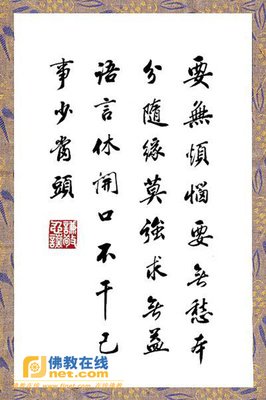 要無煩惱要無愁本
分隨緣莫強求無益
語言休開口不干己
事少當頭
佛教在线
Fjnet.com